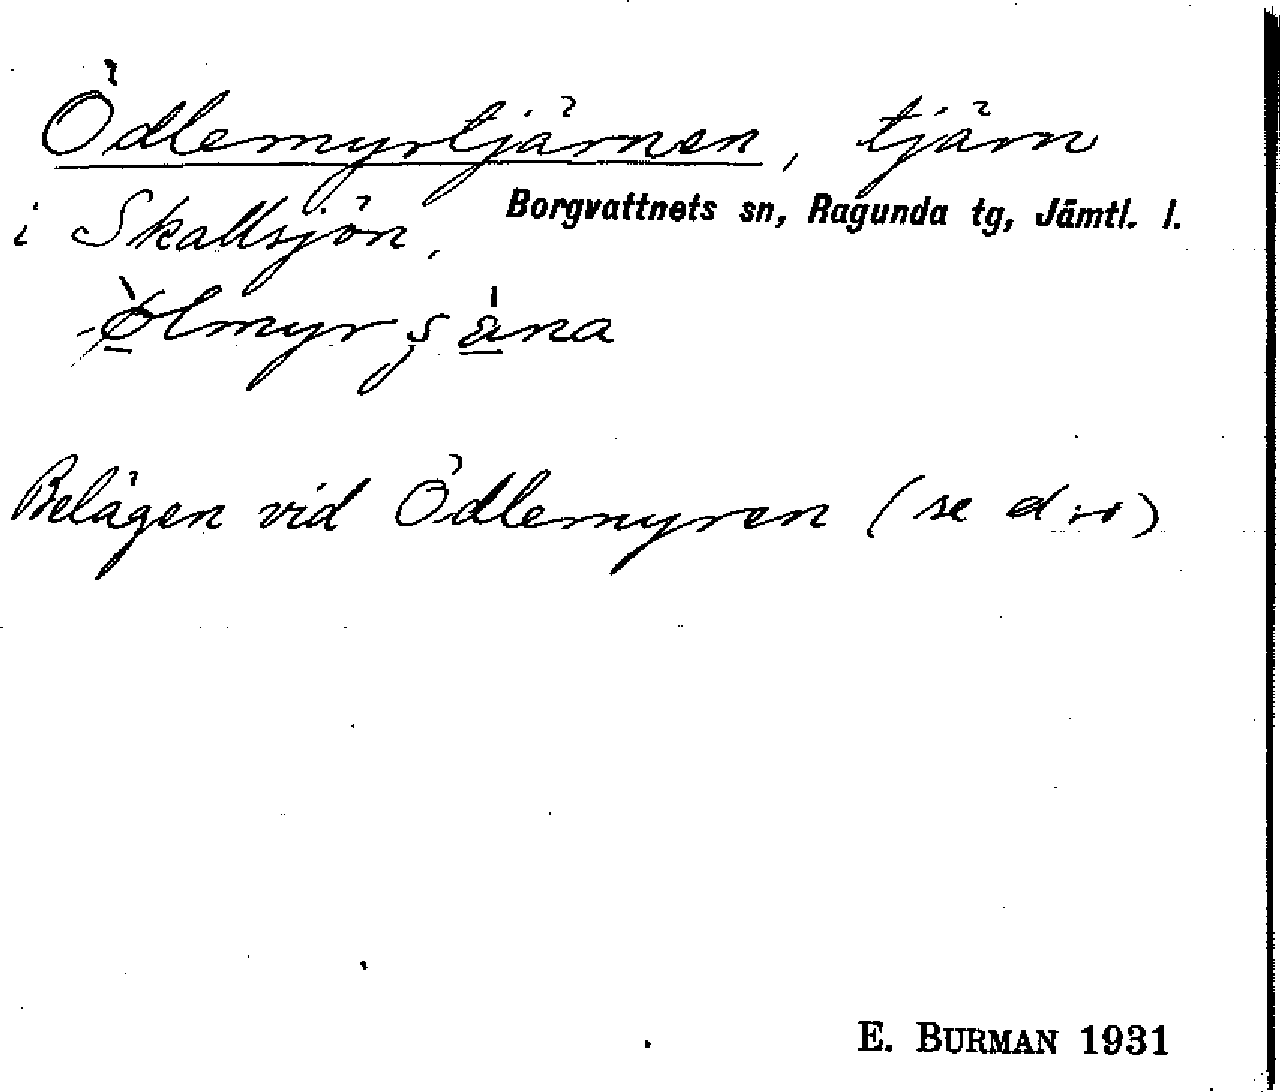 Ödlemyrtjärnen, tjärn
i Skallsjön, Borgvattnets sn, Ragunda tg, Jämtl. l.
Belägen vid Ödlemyren (se d:o)
E. BURMAN 1931